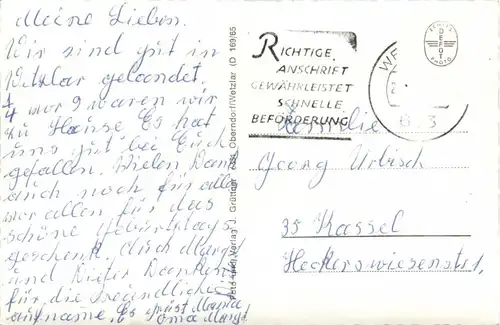 Meine Lieben.
Wir sind gut in
Wetzlar gelandet.
1/4 vor 9 waren wir
zu Hause Es hat
uns gut bei Euch
gefallen. Vielen Dank
auch noch für alles
vor allen für das
schöne Geburtstags
geschenk. Auch Margt
und Dieter Danken
für die freundliche
aufname. Es grüst Mama
Oma Margt
Foto und Verlag J. Grüttner 6331 Oberndorf/Wetzlar (D 169/65
RICHTIGE
ANSCHRIFT
GEWÄHRLEISTET
SCHNELLE
BEFÖRDERUNG
ECHTES
DEFOT
PHOTO
Familie
Georg Urbisch
35 Kassel
Heckerswiesenstr 1,